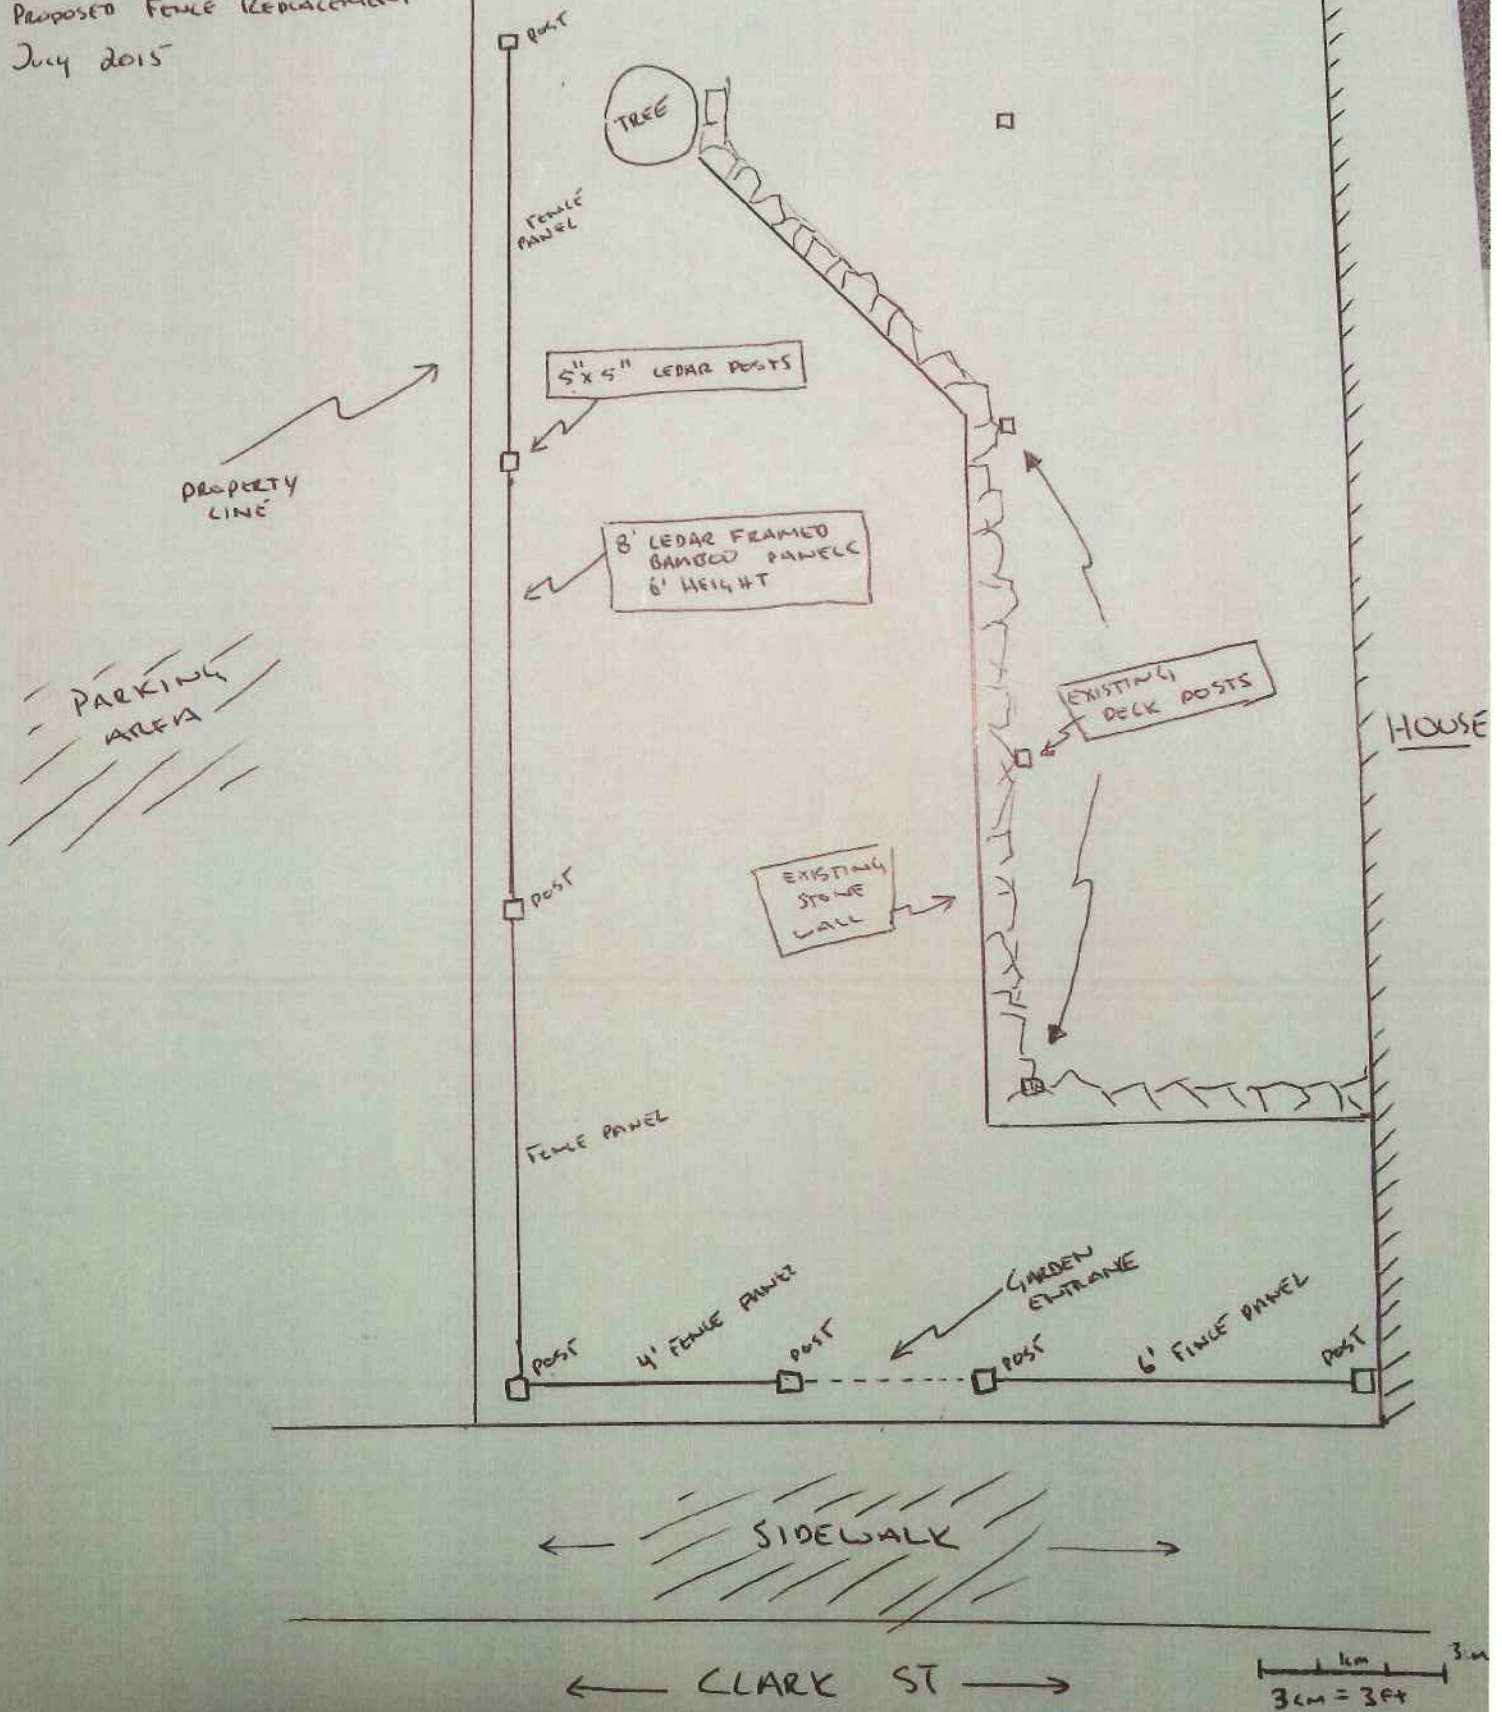 PROPOSED FENCE REPLACEMENT
JULY 2015
POST
TREE
FENCE
PANEL
5"x 5" CEDAR POSTS
PROPERTY
LINE
8' CEDAR FRAMED
BAMBOO PANELS
6' HEIGHT
PARKING
AREA
EXISTING
DECK POSTS
HOUSE
EXISTING
STONE
WALL
POST
FENCE PANEL
GARDEN
ENTRANCE
POST
4' FENCE PANEL
POST
POST
6' FENCE PANEL
POST
SIDEWALK
CLARK ST
1cm
3cm
3cm = 3Ft